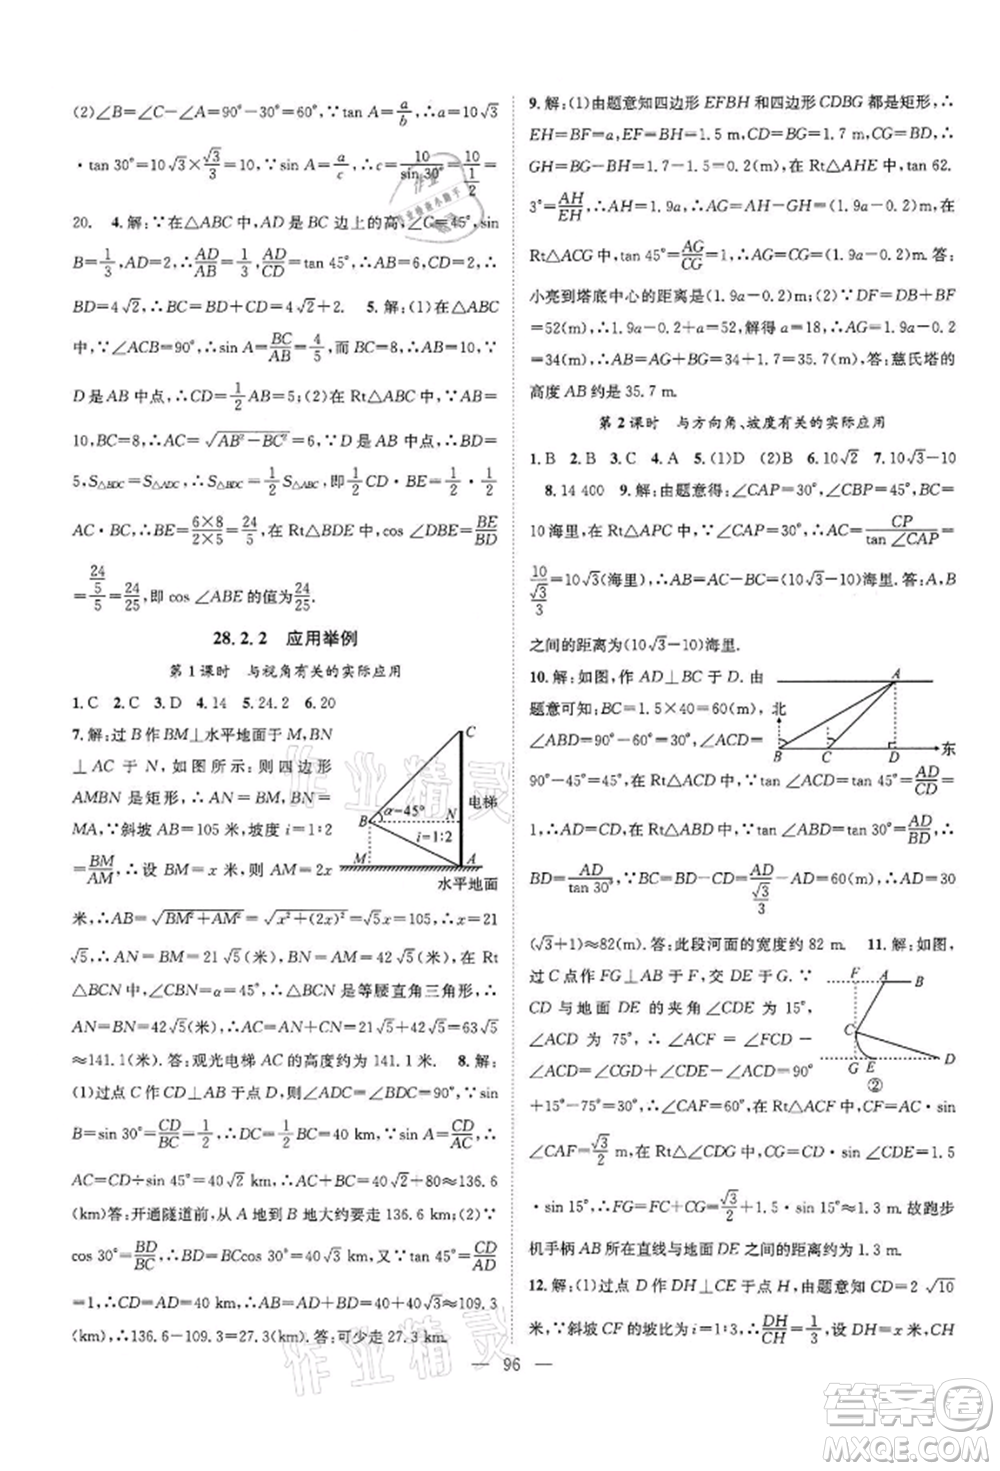 (2)∠B=∠C-∠A=90°-30°=60°,∵tan A=a/b,∴a=10√3
·tan 30°=10√3×√3/3=10,∵sin A=a/c,∴c=10/sin 30°=10/(1/2)
20. 4.解:∵在△ABC中,AD是BC边上的高,∠C=45°,sin
B=1/3,AD=2,∴AD/AB=1/3,AD/CD=tan 45°=1,∴CD=2,∴
BD=4√2,∴BC=BD+CD=4√2+2. 5.解:(1)在△ABC
中,∵∠ACB=90°,∴sin A=BC/AB=4/5,而BC=8,∴AB=10,∵
D是AB中点,∴CD=1/2AB=5;(2)在Rt△ABC中,∵AB=
10,BC=8,∴AC=√(AB²-BC²)=6,∵D是AB中点,∴BD=5,
S△BDC=S△ADC,∴S△BDC=1/2S△ABC,即1/2CD·BE=1/2·1/2
AC·BC,∴BE=(6×8)/(2×5)=24/5,在Rt△BDE中,cos∠DBE=BE/BD
=(24/5)/5=24/25,即cos∠ABE的值为24/25.
28.2.2 应用举例
第1课时 与视角有关的实际应用
1.C 2.C 3.D 4.14 5.24.2 6.20
7.解:过B作BM⊥水平地面于M,BN
⊥AC于N,如图所示:则四边形
AMBN是矩形,∴AN=BM,BN=
MA,∵斜坡AB=105米,坡度i=1:2
=BM/AM,∴设BM=x米,则AM=2x
米,∴AB=√(BM²+AM²)=√(x²+(2x)²)=√5x=105,∴x=21
√5,∴AN=BM=21√5(米),BN=AM=42√5(米),在Rt
△BCN中,∵∠CBN=α=45°,∴△BCN是等腰直角三角形,∴
AN=BN=42√5(米),∴AC=AN+CN=21√5+42√5=63√5
≈141.1(米).答:观光电梯AC的高度约为141.1米. 8.解:
(1)过点C作CD⊥AB于点D,则∠ADC=∠BDC=90°,∵sin
B=sin 30°=CD/BC=1/2,BC=80 km,∴CD=40 km,∵sin A=CD/AC,∴
AC=CD÷sin 45°=40√2 km,∴AC+BC=80+40√2≈136.6
(km)答:开通隧道前,从A地到B地大约要走136.6 km;(2)∵
cos 30°=BD/BC,∴BD=BCcos 30°=40√3 km,又∵tan 45°=CD/AD
=1,∴CD=AD=40 km,∴AB=BD+AD=40+40√3≈109.3
(km),∴136.6-109.3=27.3 km).答:可少走27.3 km.
C
电梯
B
α=45°
N
i=1:2
M
A
水平地面
9.解:(1)由题意知四边形EFBH和四边形CDBG都是矩形,∴
EH=BF=a m,∵GB=BH=1.5 m,CD=BG=1.7 m,∴
GH=BG-BH=1.7-1.5=0.2(m),在Rt△AHE中,tan 62.
3°=AH/EH=1.9,∴AH=1.9a,∴AG=AH-GH=1.9a-0.2,在
Rt△ACG中,tan 45°=AG/CG=1,∴CG=AG=1.9a-0.2.答:
小亮到塔底中心的距离是(1.9a-0.2)m;(2)∵DF=DB+BF
=52(m),∴1.9a-0.2+a=52,解得a=18,∴AG=1.9a-0.2
=34(m),∴AB=AG+BG=34+1.7=35.7(m).答:慈氏塔的
高度AB约是35.7 m.
第2课时 与方向角、坡度有关的实际应用
1.B 2.B 3.C 4.A 5.(1)D (2)B 6.10√2 7.10√3-10
8.14 400 9.解:由题意得:∠CAP=30°,∠CBP=45°,BC=
10海里,在Rt△APC中,∵∠CAP=30°,∴AC=CP/tan∠CAP=
10/(√3/3)=10√3(海里),∴AB=AC-BC=(10√3-10)海里.答:A,B
之间的距离为(10√3-10)海里.
10.解:如图,作AD⊥BC于D.由
题意可知:BC=1.5×40=60(m),
∠ABD=90°-60°=30°,∠ACD=
90°-45°=45°,在Rt△ACD中,∵tan∠ACD=tan 45°=AD/CD=
1,∴AD=CD,在Rt△ABD中,∵tan∠ABD=tan 30°=AD/BD,∴
BD=AD/tan 30°,∵BC=BD-CD=AD/(√3/3)-AD=60,∴AD=30
(√3+1)≈82(m).答:此段河面的宽度约82 m. 11.解:如图,
过C点作FG⊥AB于F,交DE于G.∵
CD与地面DE的夹角∠CDE为15°,
∠ACD为75°,∴∠ACF=∠FCD-
∠ACD=∠CGD+∠CDE-∠ACD=90°
+15°-75°=30°,∴∠CAF=60°,在Rt△ACF中,CF=AC·sin
∠CAF=√3/2 m,在Rt△CDG中,CG=CD·sin∠CDE=1.5
·sin 15°,∴FG=FC+CG=√3/2+1.5·sin 15°≈1.3.故跑步
机手柄AB所在直线与地面DE之间的距离约为1.3 m.
12.解:(1)过点D作DH⊥CE于点H,由题意知CD=2√10
米,∵斜坡CF的坡比为i=1:3,∴DH/CH=1/3,设DH=x米,CH
北
A
B
C
D
东
F
A
B
C
G
E
D
②
96
作业精灵
作业精灵
答案圈
MXQE.COM